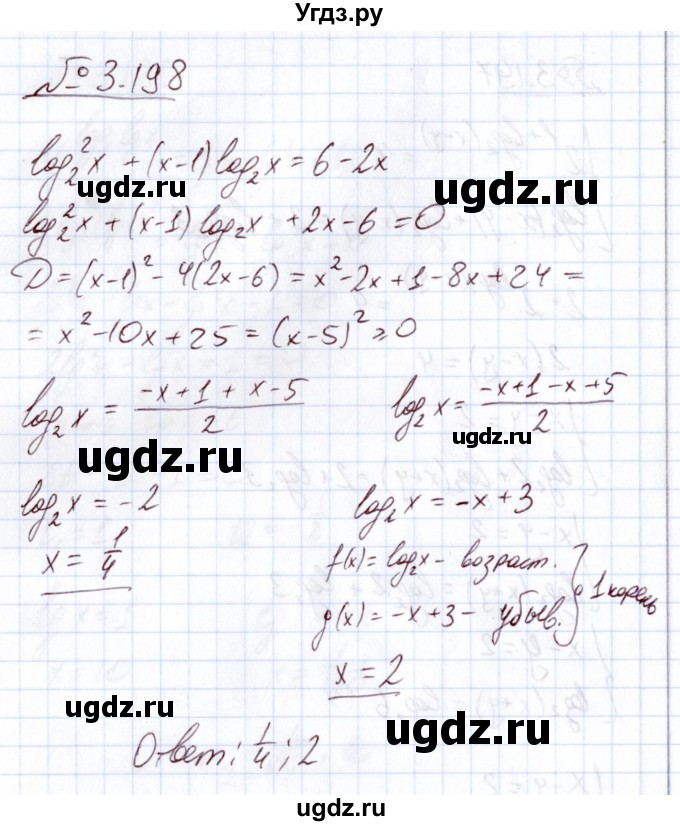 Угдз.ру
№ 3.198
log₂²x + (x-1) log₂x = 6 - 2x
ugdz.ru ugdz.ru
log₂²x + (x-1) log₂x + 2x - 6 = 0
D = (x-1)² - 4(2x-6) = x² - 2x + 1 - 8x + 24 =
= x² - 10x + 25 = (x-5)² ⩾ 0
log₂x = (-x+1+x-5)/2 log₂x = (-x+1-x+5)/2
ugdz.ru ugdz.ru
log₂x = -2 log₂x = -x+3
x = 1/4 f(x) = log₂x - возраст.
g(x) = -x+3 - убыв. } 1 корень
ugdz.ru ugdz.ru
x = 2
ugdz.ru ugdz.ru
Ответ: 1/4; 2
ugdz.ru